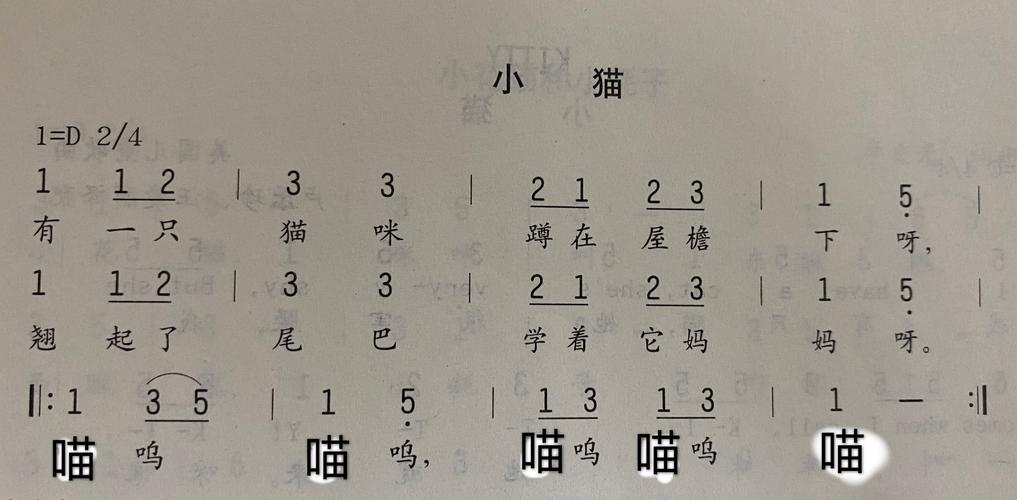 小 猫
1=D 2/4
1 1 2 | 3 3 | 2 1 2 3 | 1 5̣ |
有 一 只 猫 咪 蹲 在 屋 檐 下 呀，
1 1 2 | 3 3 | 2 1 2 3 | 1 5̣
翘 起 了 尾 巴 学 着 它 妈 妈 呀。
‖: 1 3 5 | 1 5̣ | 1 3 1 3 | 1 — :‖
喵 呜 喵 呜， 喵 呜 喵 呜 喵